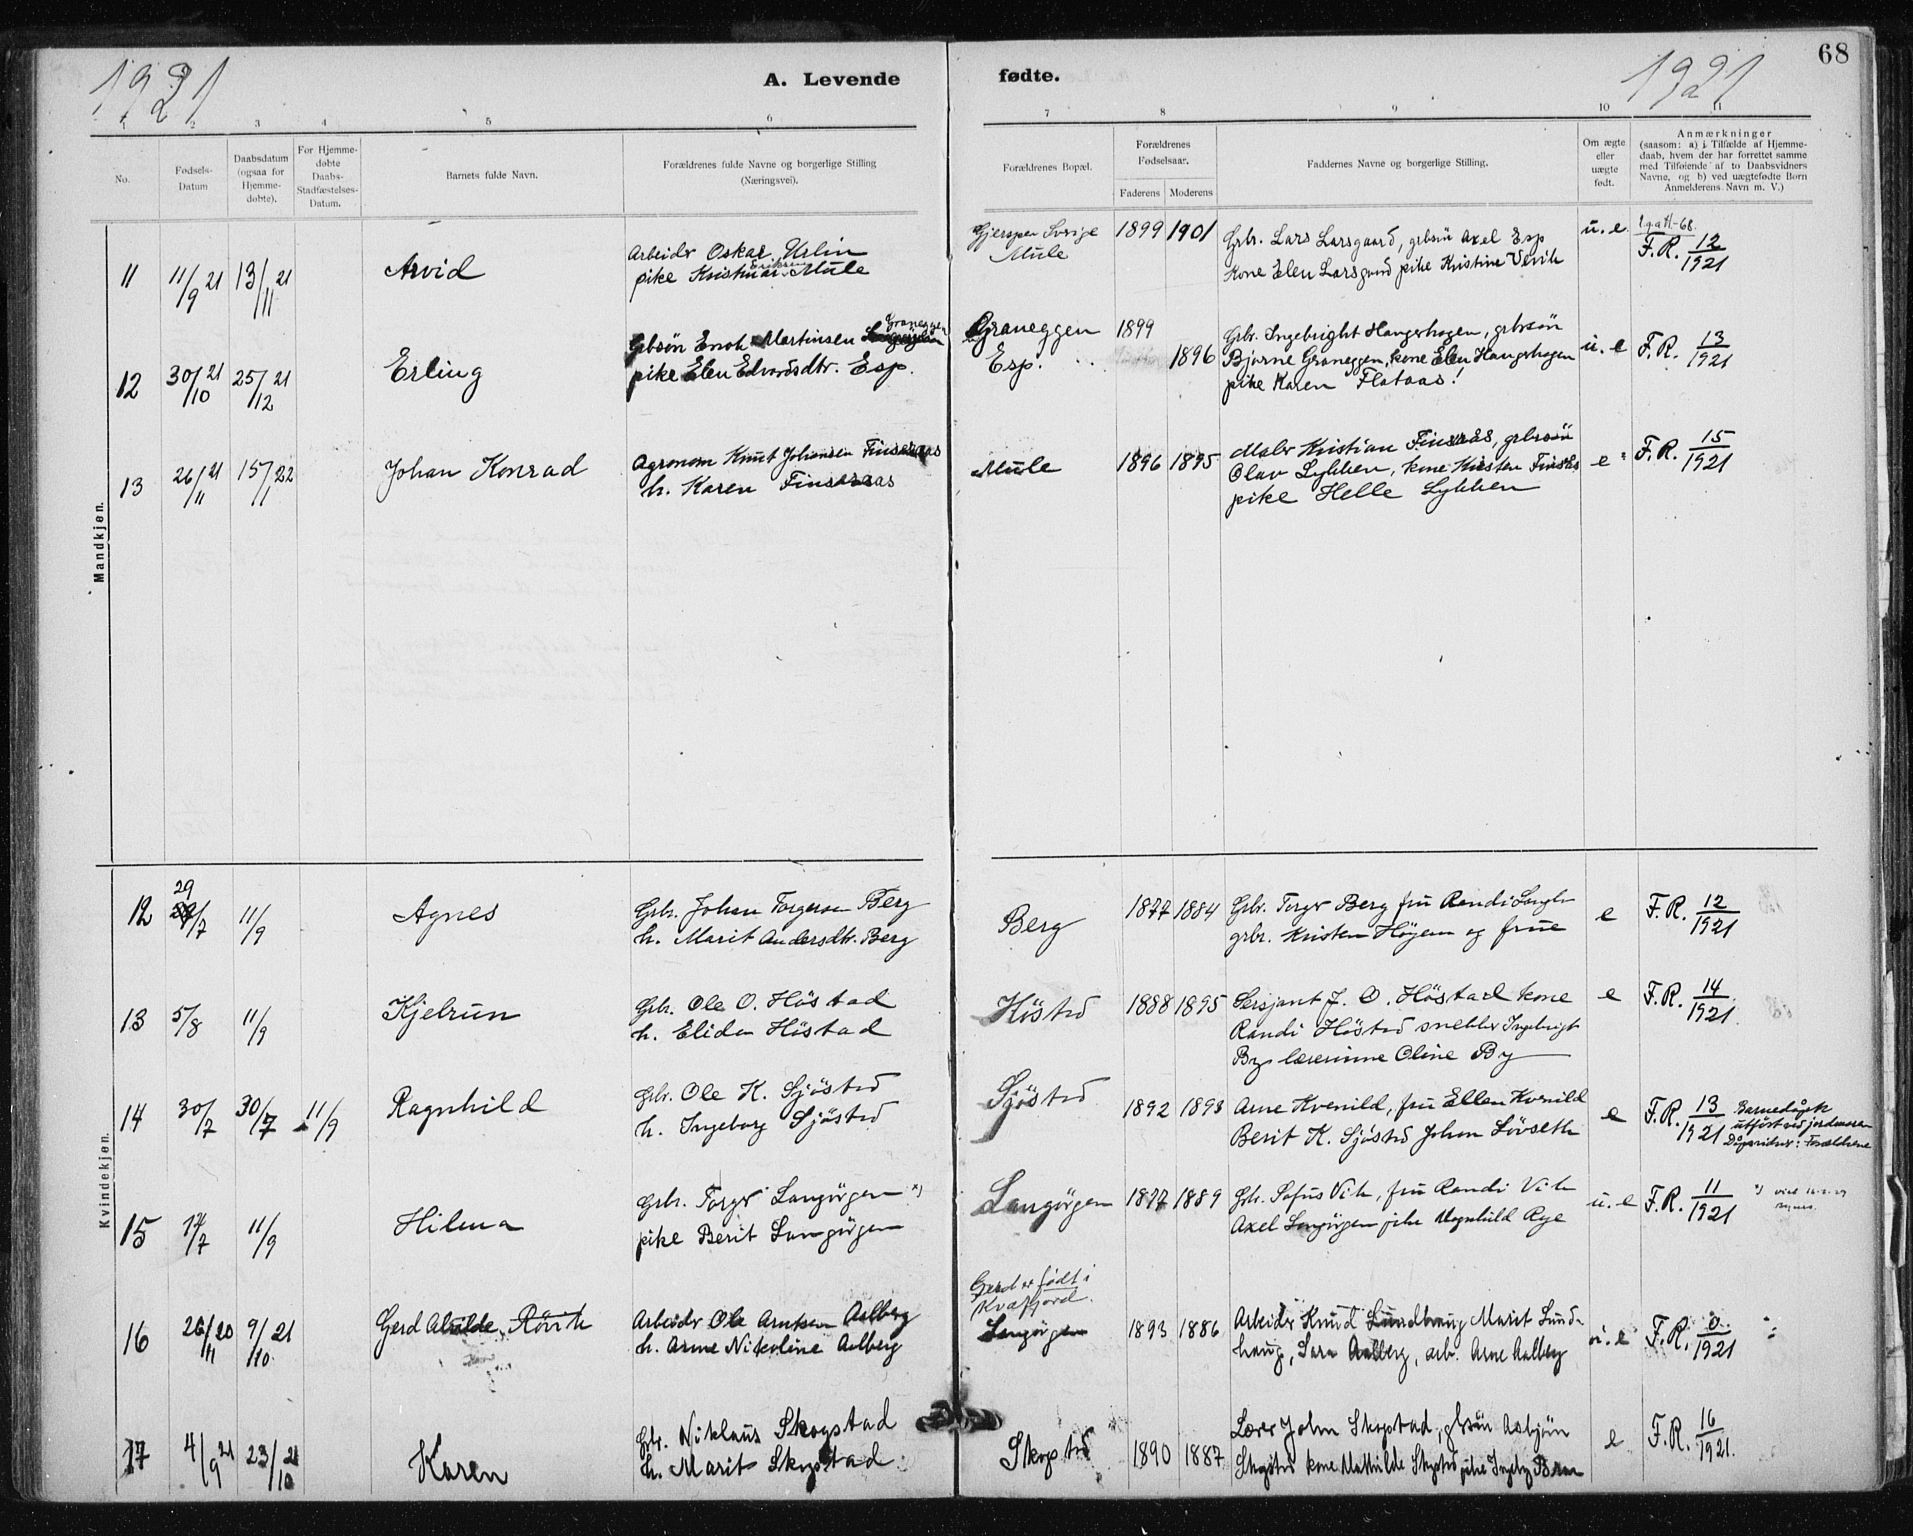 1921
A. Levende
fødte.
1921
68
1 2 3 4 5 6 7 8 9 10 11
No.
Fødsels-
Datum
Daabsdatum
(ogsaa for
Hjemme-
døbte).
For Hjemme-
døbte
Daabs-
Stadfæstelses-
Datum.
Barnets fulde Navn.
Forældrenes fulde Navne og borgerlige Stilling
(Næringsvei).
Forældrenes Bopæl.
Forældrenes
Fødselsaar.
Faderens Moderens
Faddernes Navne og borgerlige Stilling.
Om ægte
eller
uægte
født.
Anmærkninger
(saasom: a) i Tilfælde af Hjemme-
daab, hvem der har forrettet samme
med Tilføiende af to Daabsvidners
Navne, og b) ved uægtefødte Børn
Anmelderens Navn m. V.)
Mandkjøn.
11 11/9 21 13/11 21 Arvid
Arbeider Oskar
pike Mule
Sverige
Mule
1899 1901
Grbr. Lars Larsgaard, grbsön Axel Esp
Kone Elen Larsgaard pike Kristine
u. e
F. R. 12/1921
12 30/10 21 25/12 21 Erling
Graneggen
Grbsön Enok Martinsen
pike Elen Edvardsdtr. Esp.
Graneggen
Esp.
1899 1896
Grbr. Ingebright Hangerhagen, grbrsön
Bjarne Graneggen, kone Elen Hangerhagen
pike Karen Flataas!
u. e
F. R. 13/1921
13 26/11 21 15/1 22 Johan Konrad
Agronom Knut Johansen Finsaaas
h. Karen Finsaraas
Mule
1896 1895
Maler Kristian Finsrås, grbrsön
Olav Lykken, kone Kirsten
pike Helle Lykken
e
F. R. 15/1921
Kvindekjøn.
12 29/7 11/9 Agnes
Grbr. Johan Torgersen Berg
h. Marit Andersdtr. Berg
Berg
1877 1884
Grbr. Torger Berg fru Randi
grbr. Kristen Höyem og frue
e
F. R. 12/1921
13 5/8 11/9 Kjelrun
Grbr. Ole O. Höstad
h. Eliden Höstad
Höstad
1888 1895
Sersjant J. O. Höstad kone
Randi Höstad snekker Ingebrigt
By lærerinne Oline By
e
F. R. 14/1921
14 30/7 30/7 11/9 Ragnhild
Grbr. Ole K. Sjöstad
h. Ingeborg Sjöstad
Sjöstad
1892 1893
Arne Kvenild, fru Ellen Kvenild
Berit K. Sjöstad Johan Lövseth
e
F. R. 13/1921
Barnedåpen
utfört ved jordmoren
Dåpsvidner: Forældrene
15 17/7 11/9 Hilma
Grbr. Torger Langörgen x)
pike Berit Langörgen
Langörgen
1877 1889
Grbr. Sofus Vik, fru Randi Vik
Axel Langörgen pike Magnhild Rye
u. e
F. R. 11/1921
16 26/11 20 9/10 21 Gerd
Arbeider Ole Arntsen Aalberg
h. Anne Nikoline Aalberg
Gerd er født i
Kvæfjord.
Langörgen
1893 1886
Arbeider Knud Lundhaug Marit Lund-
haug, Sara Aalberg, arb. Arne Aalberg
u. e
F. R. 0/1921
17 4/9 21 23/10 21 Karen
Grbr. Niklaus Skogstad
h. Marit Skogstad
Skogstad
1890 1887
Lærer John Skogstad, grbrsön Asbjörn
Skogstad kone Mathilde Skogstad pike Ingeborg
e
F. R. 16/1921.